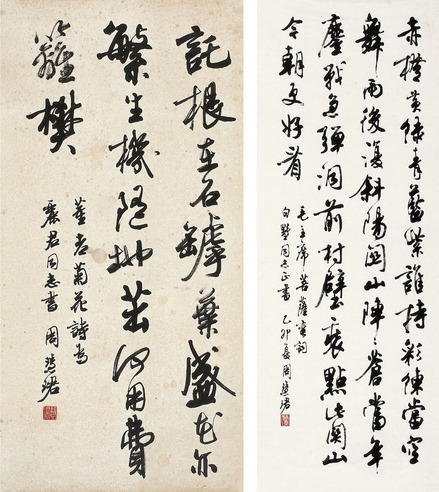 託根在石罅葉盛花亦
繁生機隨地茁何用費
籬樊
董老菊花詩為
君同志書 周慧珺
赤橙黃綠青藍紫誰持彩練當空
舞雨後復斜陽関山陣々蒼當年
鏖戰急彈洞前村壁裝點此関山
今朝更好看
毛主席菩薩蠻詞
同志正書 乙卯夏周慧珺